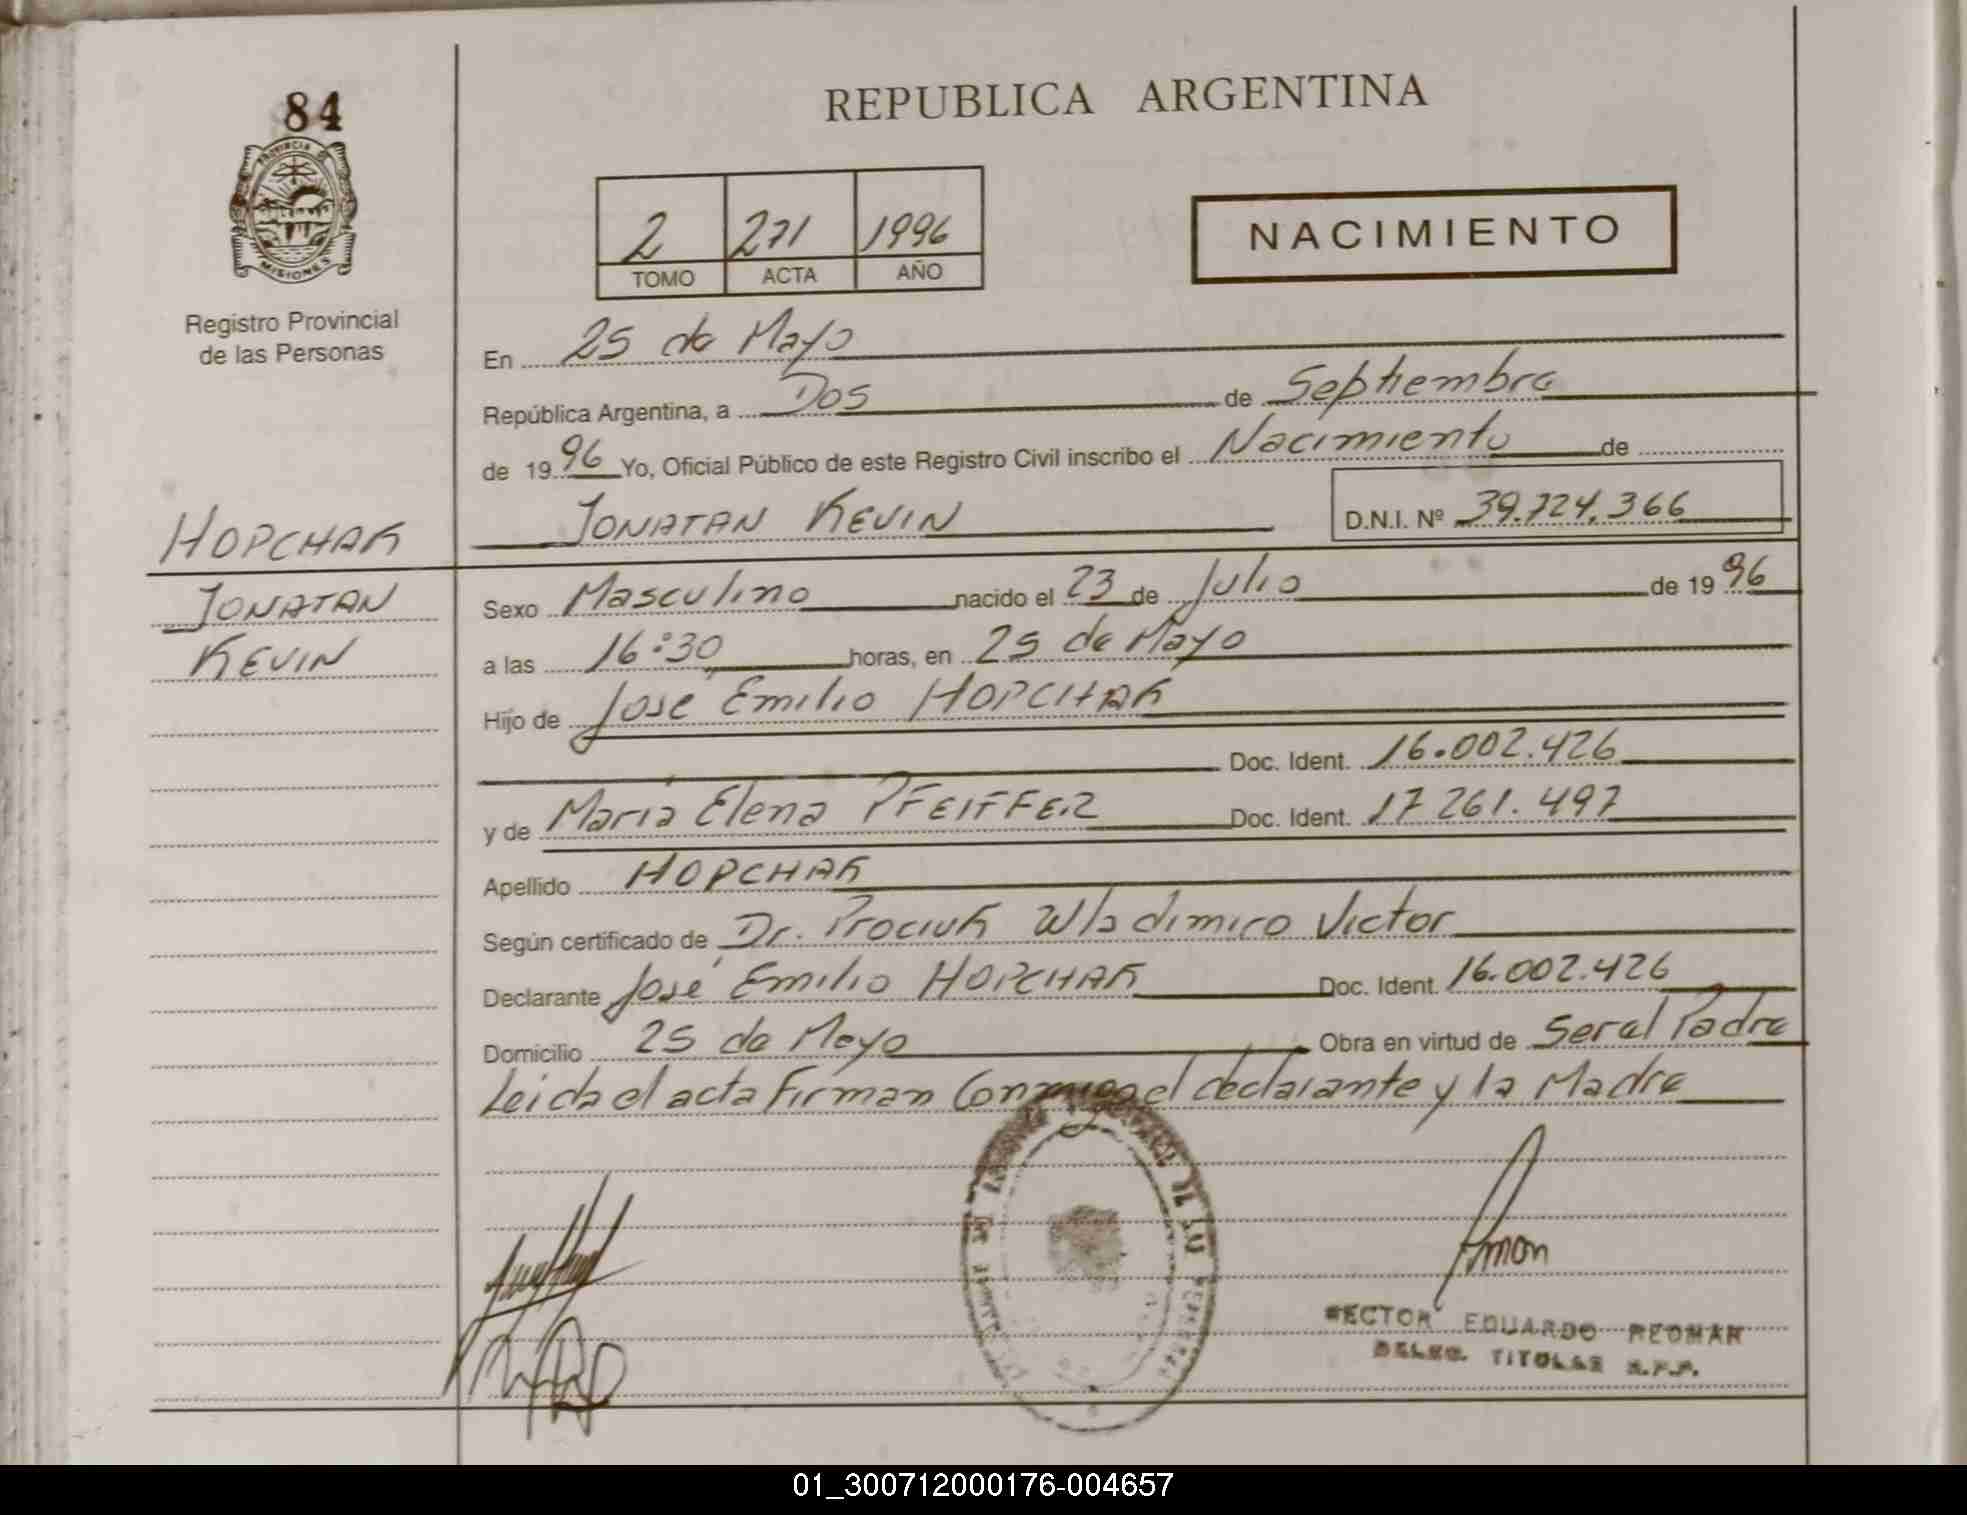 84
PROVINCIA DE
MISIONES
Registro Provincial
de las Personas
HOPCHAK
JONATAN
KEVIN
REPUBLICA ARGENTINA
2 271 1996
TOMO ACTA AÑO
NACIMIENTO
En 25 de Mayo
República Argentina, a Dos de Septiembre
de 1996 Yo, Oficial Público de este Registro Civil inscribo el Nacimiento de
JONATAN KEVIN D.N.I. Nº 39.724.366
Sexo Masculino nacido el 23 de Julio de 1996
a las 16:30 horas, en 25 de Mayo
Hijo de José Emilio HOPCHAK
Doc. Ident. 16.002.426
y de María Elena PFEIFFER Doc. Ident. 17 261.497
Apellido HOPCHAK
Según certificado de Dr. Prociuk Wladimiro Victor
Declarante José Emilio HOPCHAK Doc. Ident. 16.002.426
Domicilio 25 de Mayo Obra en virtud de Ser el Padre
Leida el acta Firman Conmigo el declarante y la Madre
HECTOR EDUARDO REOMAR
DELEG. TITULAR R.P.P.
01_300712000176-004657